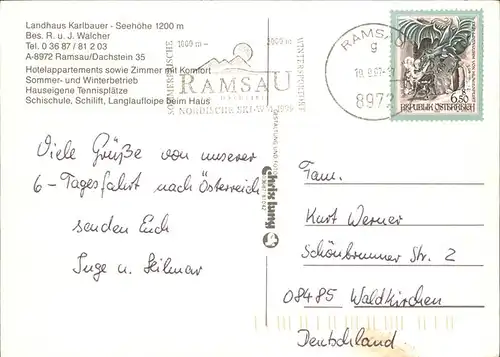 Landhaus Karlbauer - Seehöhe 1200 m
Bes. R. u. J. Walcher
Tel. 0 36 87 / 81 2 03
A-8972 Ramsau/Dachstein 35
Hotelappartements sowie Zimmer mit Komfort
Sommer- und Winterbetrieb
Hauseigene Tennisplätze
Schischule, Schilift, Langlaufloipe beim Haus
SOMMERFRISCHE
1000 m -
3000 m
WINTERSPORTORT
RAMSAU
NORDISCHE SKI-WM 1999
RAMSAU
g
8972
6,50
REPUBLIK ÖSTERREICH
Viele Grüße von unserer
6-Tagesfahrt nach Österreich
senden Euch
Inge u. Hilmar
Fam.
Kurt Werner
Schönbrunner Str. 2
08485 Waldkirchen
Deutschland.